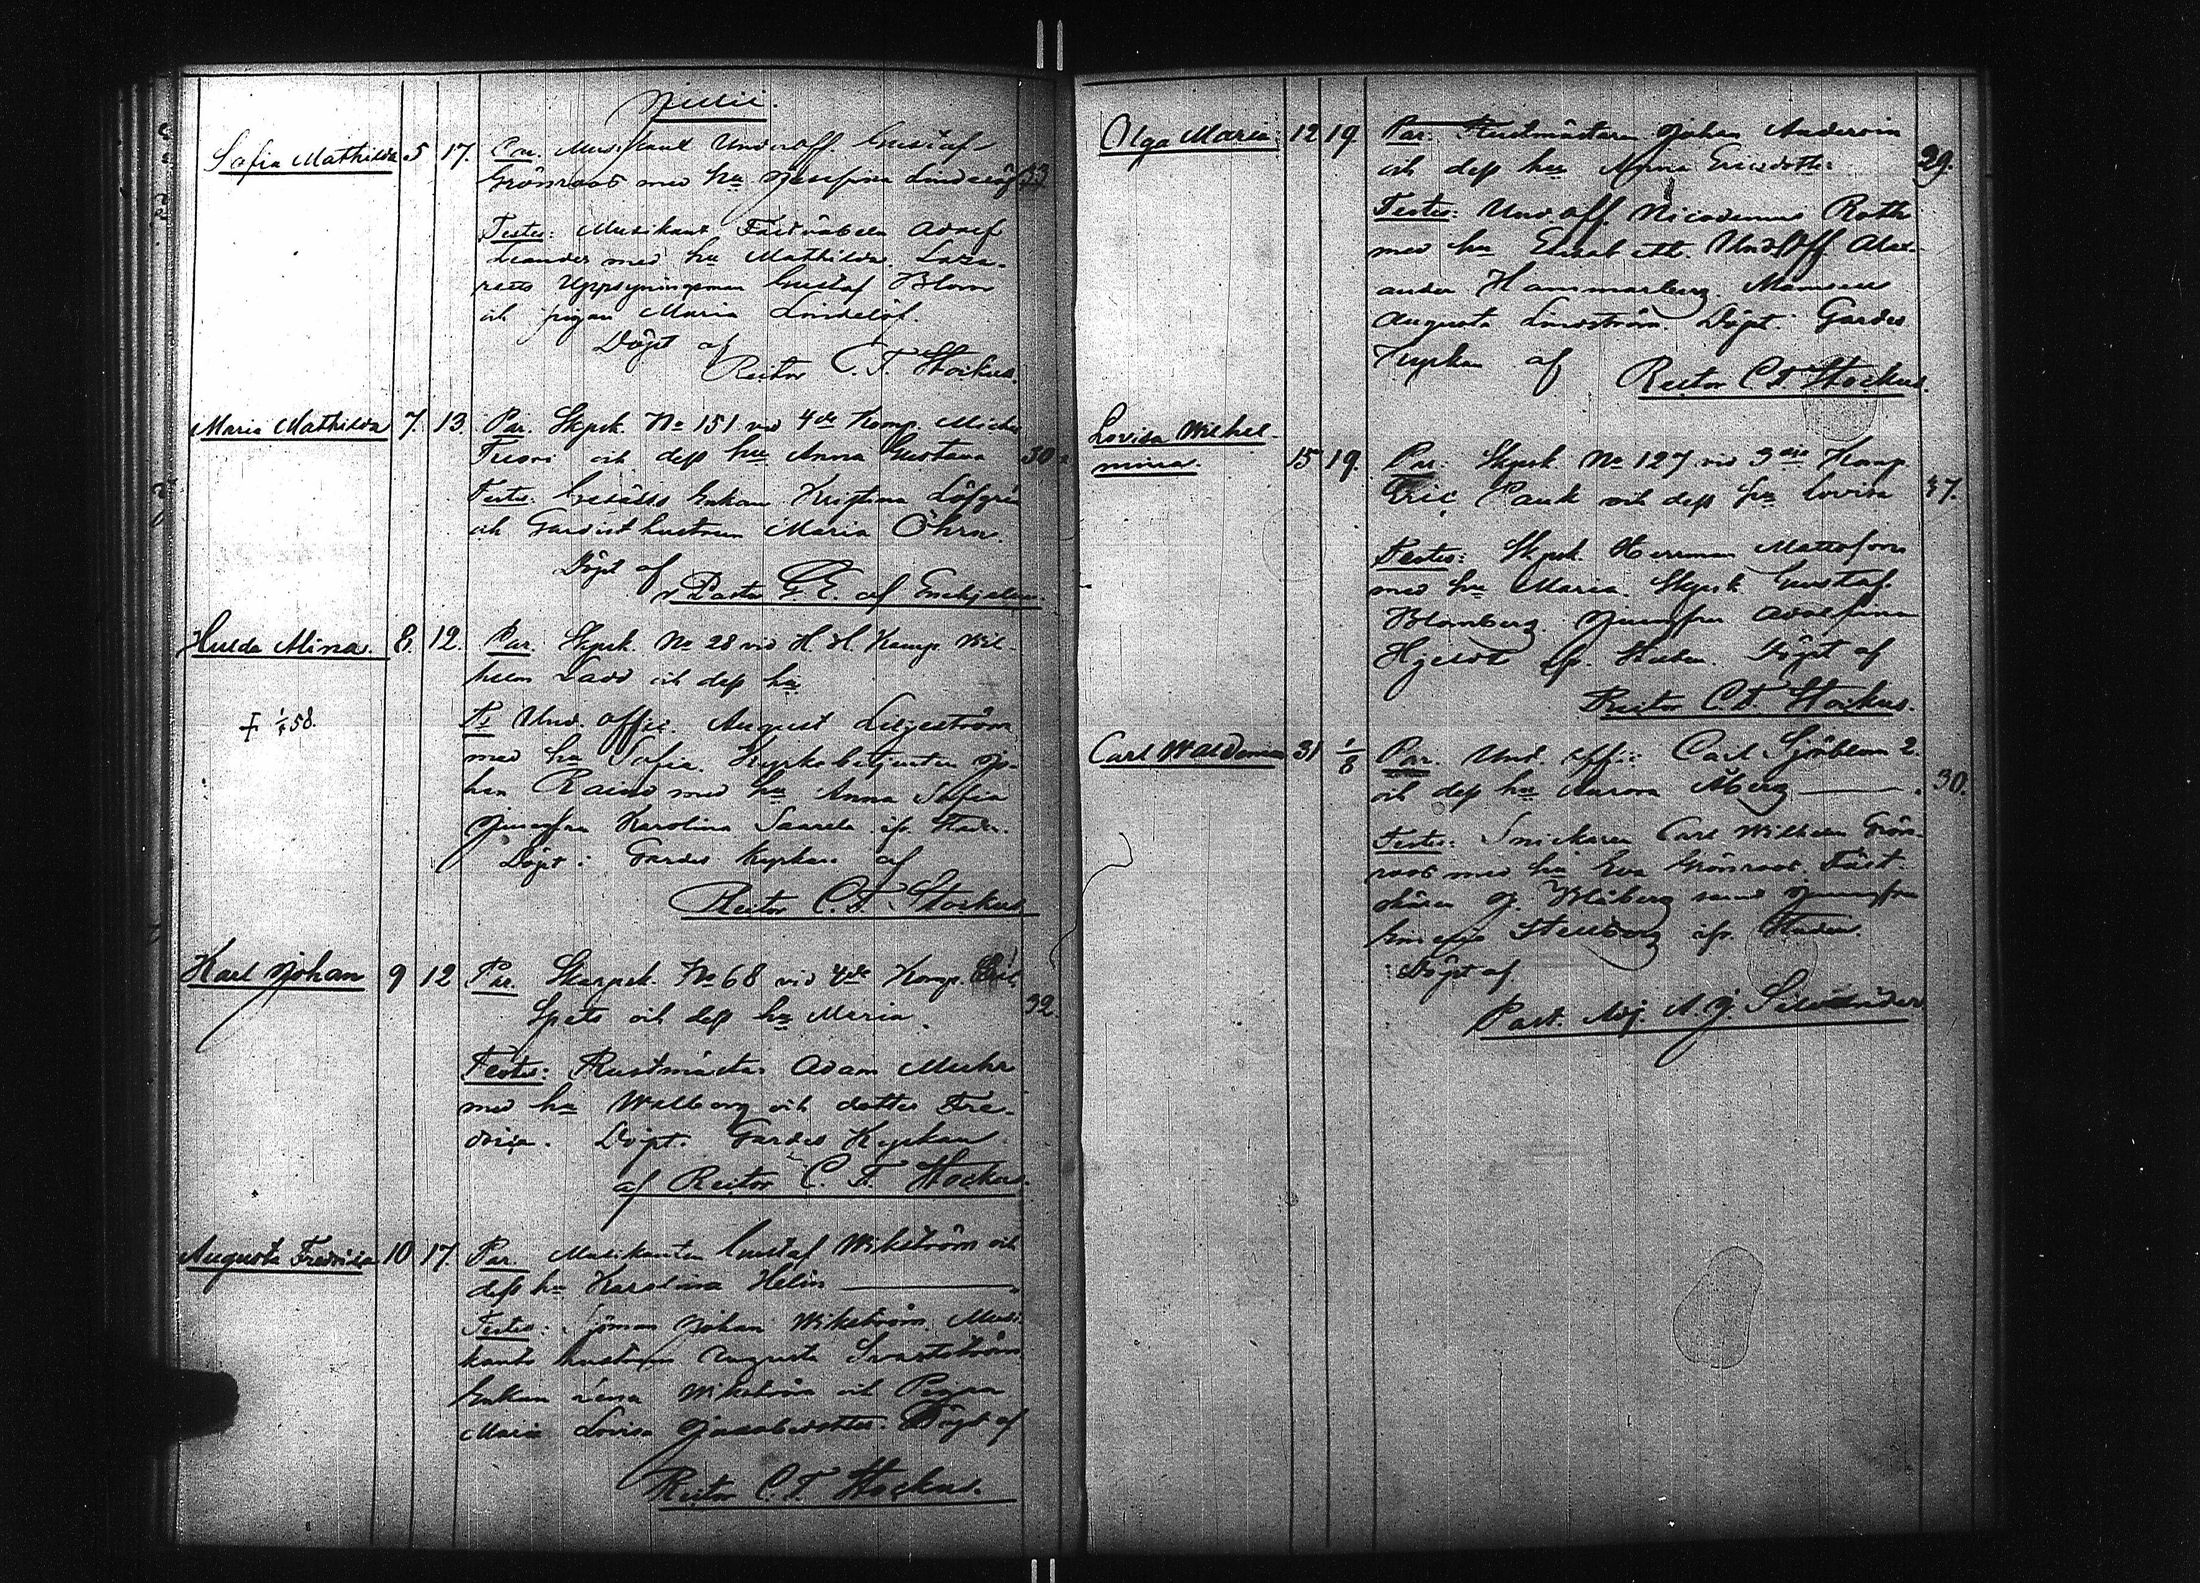 Julii.
Sofia Mathilda 5 17. Par. Musikant Underoff. Gustaf
Grönroos med hu Josefina Lindelöf 33
Testes: Musikant Fältväbeln Adolf
Leander med hu Mathilda. Laza-
retts Uppsyningsman Gustaf Blom
och pigan Maria Lindelöf.
Döpt af
Rector C. F. Stockus.
Maria Mathilda 7. 13. Par. Skpsk. No 151 vid 4de Komp. Michel
och dess hu Anna Gustava 30
Testes: Enkan Kristina Löfgrén
och Gardist hustrun Maria Öhrn.
Döpt af
v Pastor G. E. af Enehjelm.
Hulda Mina. 8. 12. Par. Skpsk. No 28 vid H. M. Komp. Wil-
helm Ladd och dess hu
Ts Und. offic. August Liljeström
med hu Sofia. Kyrkobetjenten Jo-
han med hu Anna Sofia
Jungfru Karolina Saarela ifr. Staden.
Döpt i Gardes Kyrkan af
Rector C. F. Stockus
Karl Johan 9 12 Par. Skarpsk. No 68 vid 4de Komp.
Spets och dess hu Maria. 32.
Testes: Rustmästar Adam Muhr
med hu Walborg och dotter Fre-
drica. Döpt. Gardes Kyrkan
af Rector C. F. Stockus.
Augusta Fredrika 10 17. Par. Musikanten Gustaf Wikström och
dess hu Karolina Helin
Testes: Sjöman Johan Wikström, Musi-
kants hustrun Augusta Svartström
Enkan Lena Wikström och Pigan
Maria Lovisa Jacobsdotter. Döpt af
Rector C. F. Stockus.
Olga Maria. 12 19. Par. Rustmästaren Johan Andersin
och dess hu Anna Ericsdotter 29.
Testes: Und. off. Nicodemus Roth
med hu Elisabeth. Und. Off. Alex-
ander Hammarberg. Mamsell
Augusta Lindström. Döpt. Gardes
Kyrkan af Rector C. F. Stockus.
Lovisa Wilhel-
mina. 15 19. Par. Skpsk. No 127 vid 3dje Komp.
Eric Pauk och dess hu Lovisa 37.
Testes: Skpsk. Herrman Mattsson
med hu Maria. Skpsk. Gustaf
Blomberg. Jungfru Adolfina
Hjeldt ifr. Staden. Döpt af
Rector C. F. Stockus.
Carl Waldemar 31 1/8 Par. Und. offic. Carl Sjöblom 2.
och dess hu Aurora Åberg 30.
Testes: Snickaren Carl Wilhelm Grön-
roos med hu Eva Grönroos. Fält-
skären J. Blåberg samt Jungfru
Stenberg ifr. Staden.
Döpt af
Past. Adj. A. J.